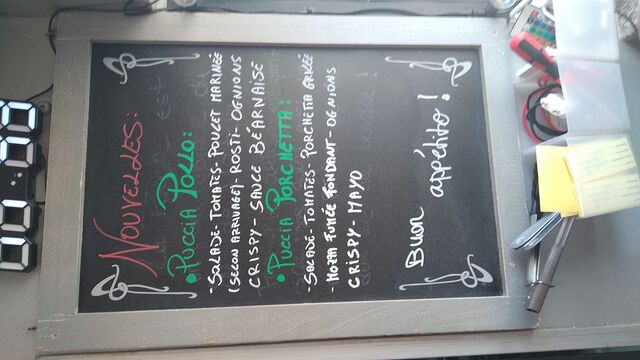 NOUVELLES:
• PUCCIA POLLO:
- SALADE - TOMATES - POULET MARINÉE
(SELON ARRIVAGE) - ROSTI - OGNIONS
CRISPY - SAUCE BÉARNAISE
• PUCCIA PORCHETTA:
- SALADE - TOMATES - PORCHETTA GRILLÉE
- MOZZA FUMÉE FONDANT - OGNIONS
CRISPY - MAYO
Buon appétito!